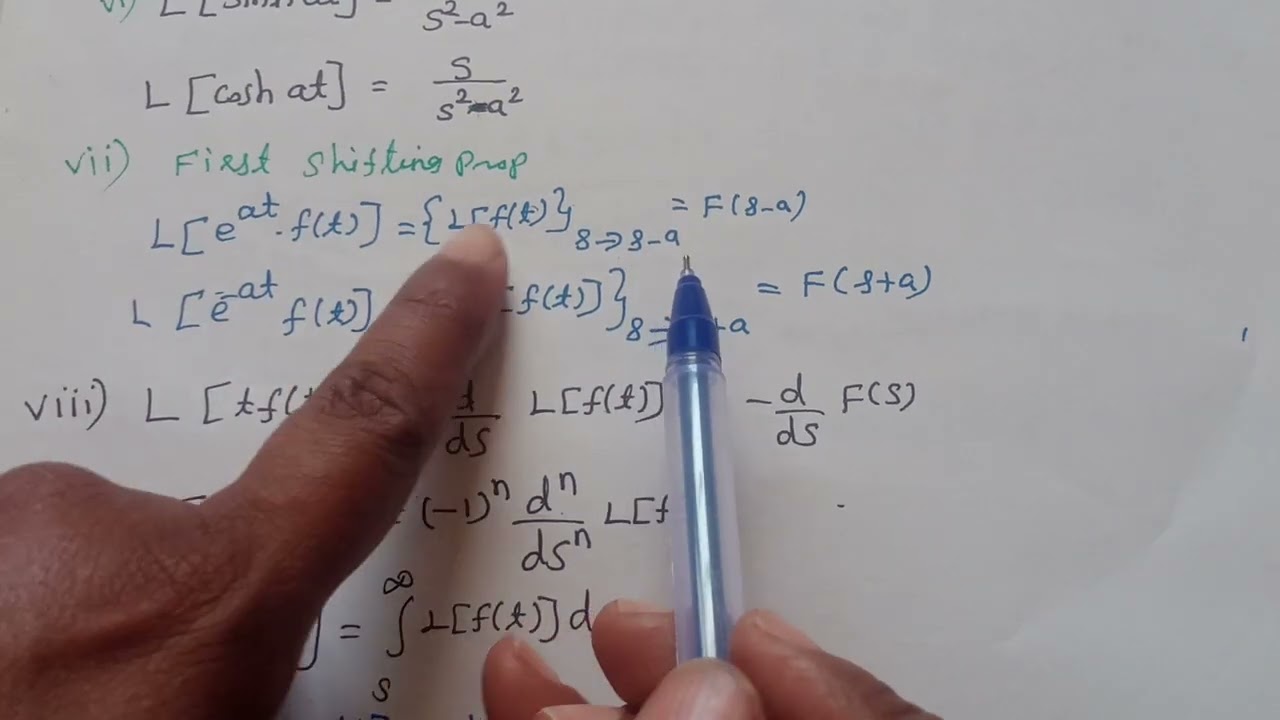 vi) L [sinh at] = / s²-a²
L [cosh at] = s / s²-a²
vii) First Shifting Prop
L[e^{at}.f(t)] = {L[f(t)}_{s→s-a} = F(s-a)
L [e^{-at} f(t)] [f(t)]}_{s→ +a} = F(s+a)
viii) L [tf( d/ds L[f(t)] -d/ds F(S)
= (-1)^n d^n/ds^n L[f
] = ∫_s^∞ L[f(t)] d